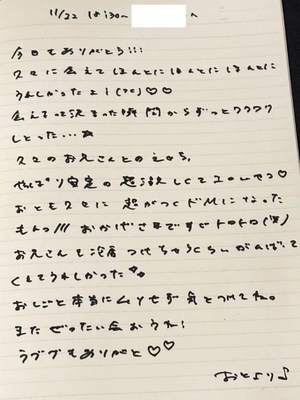 11/22 18:30〜 へ
今日もありがとう!!!
久々に会えてほんとにほんとにほんとに
うれしかったよ!(??)♡♡
会えるって決まった瞬間からずっとワクワク
しとった…
久々のお兄さんとのえっち、
やっぱり安定の超激しくてエロいやつ♡
おとも久々に超がつくドMになった
もんっ/// おかげさまですぐトロトロ(笑)
お兄さんも液 つけちゃうくらいがんばって
くれてうれしかった
おしごと本当にムリせず気をつけてね。
またぜったい会おうね!
ラブグもありがと♡♡
おとより♪